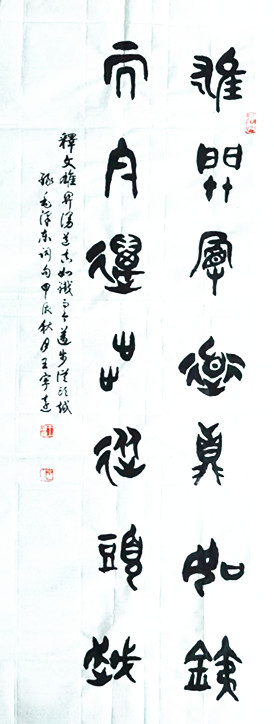 雄關漫道真如銕
而今邁步從頭越
釋文雄關漫道真如鐵而今邁步從頭越
錄毛澤東詞句甲辰秋月王